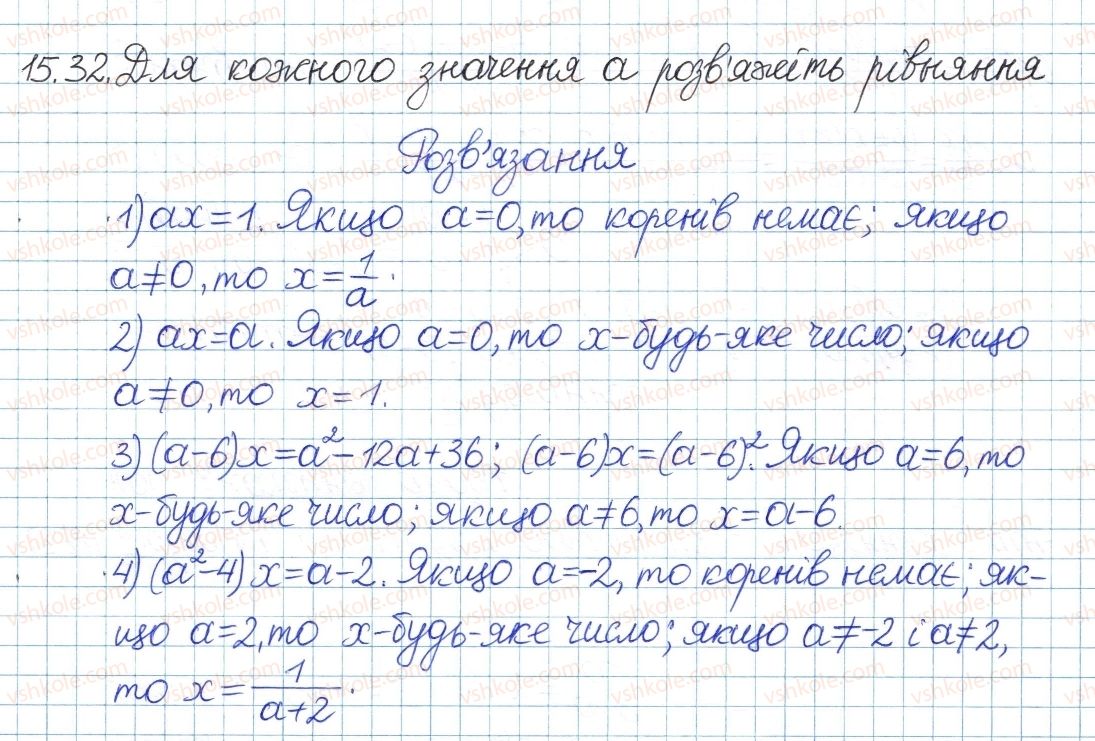 15.32. Для кожного значення a розв'яжіть рівняння
Розв'язання
1) ax=1. Якщо a=0, то коренів немає; якщо
a≠0, то x=1/a.
2) ax=a. Якщо a=0, то x-будь-яке число; якщо
a≠0, то x=1.
3) (a-6)x=a²-12a+36; (a-6)x=(a-6)². Якщо a=6, то
x-будь-яке число; якщо a≠6, то x=a-6.
4) (a²-4)x=a-2. Якщо a=-2, то коренів немає; як-
що a=2, то x-будь-яке число; якщо a≠-2 і a≠2,
то x=1/(a+2).